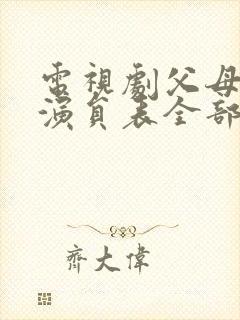 電視劇父母
演員表全部
齊大偉